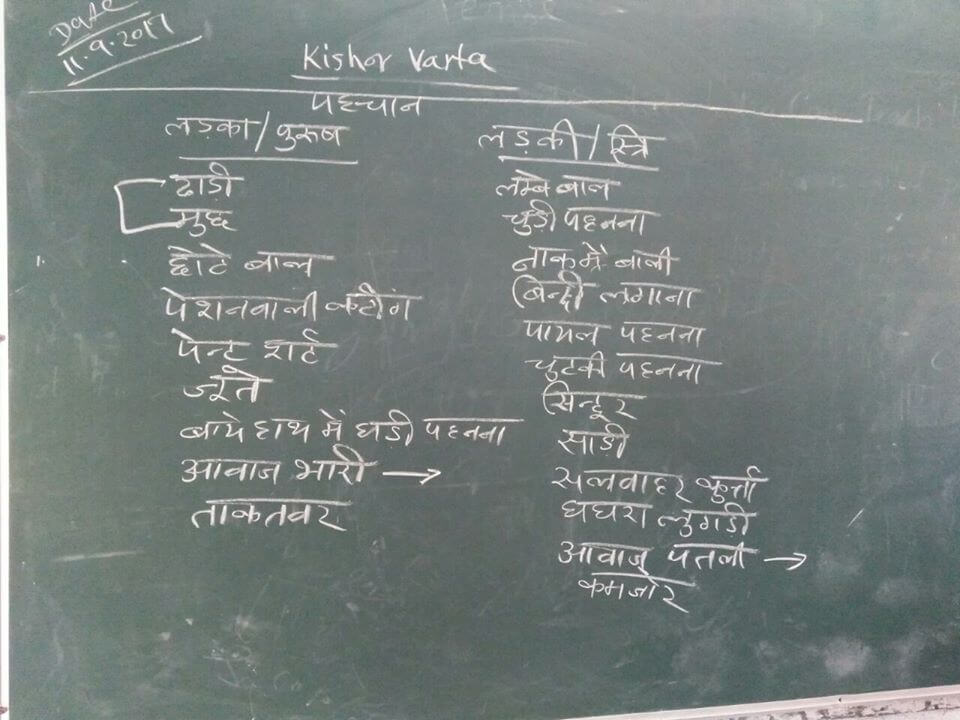 Date
11.9.2017
Kishor Varta
पहचान
लड़का/पुरुष
दाड़ी
मुछ
छोटे बाल
पेशनवाली कटींग
पेन्ट शर्ट
जूते
बाये हाथ में घड़ी पहनना
आवाज भारी →
ताकतवर
लड़की/स्त्रि
लम्बे बाल
चुड़ी पहनना
नाक मे बाली
बिन्दी लगाना
पायल पहनना
चुटकी पहनना
सिन्दूर
साड़ी
सलवाहर कुर्त्ता
घघरा लुगडी
आवाज पतली →
कमजोर